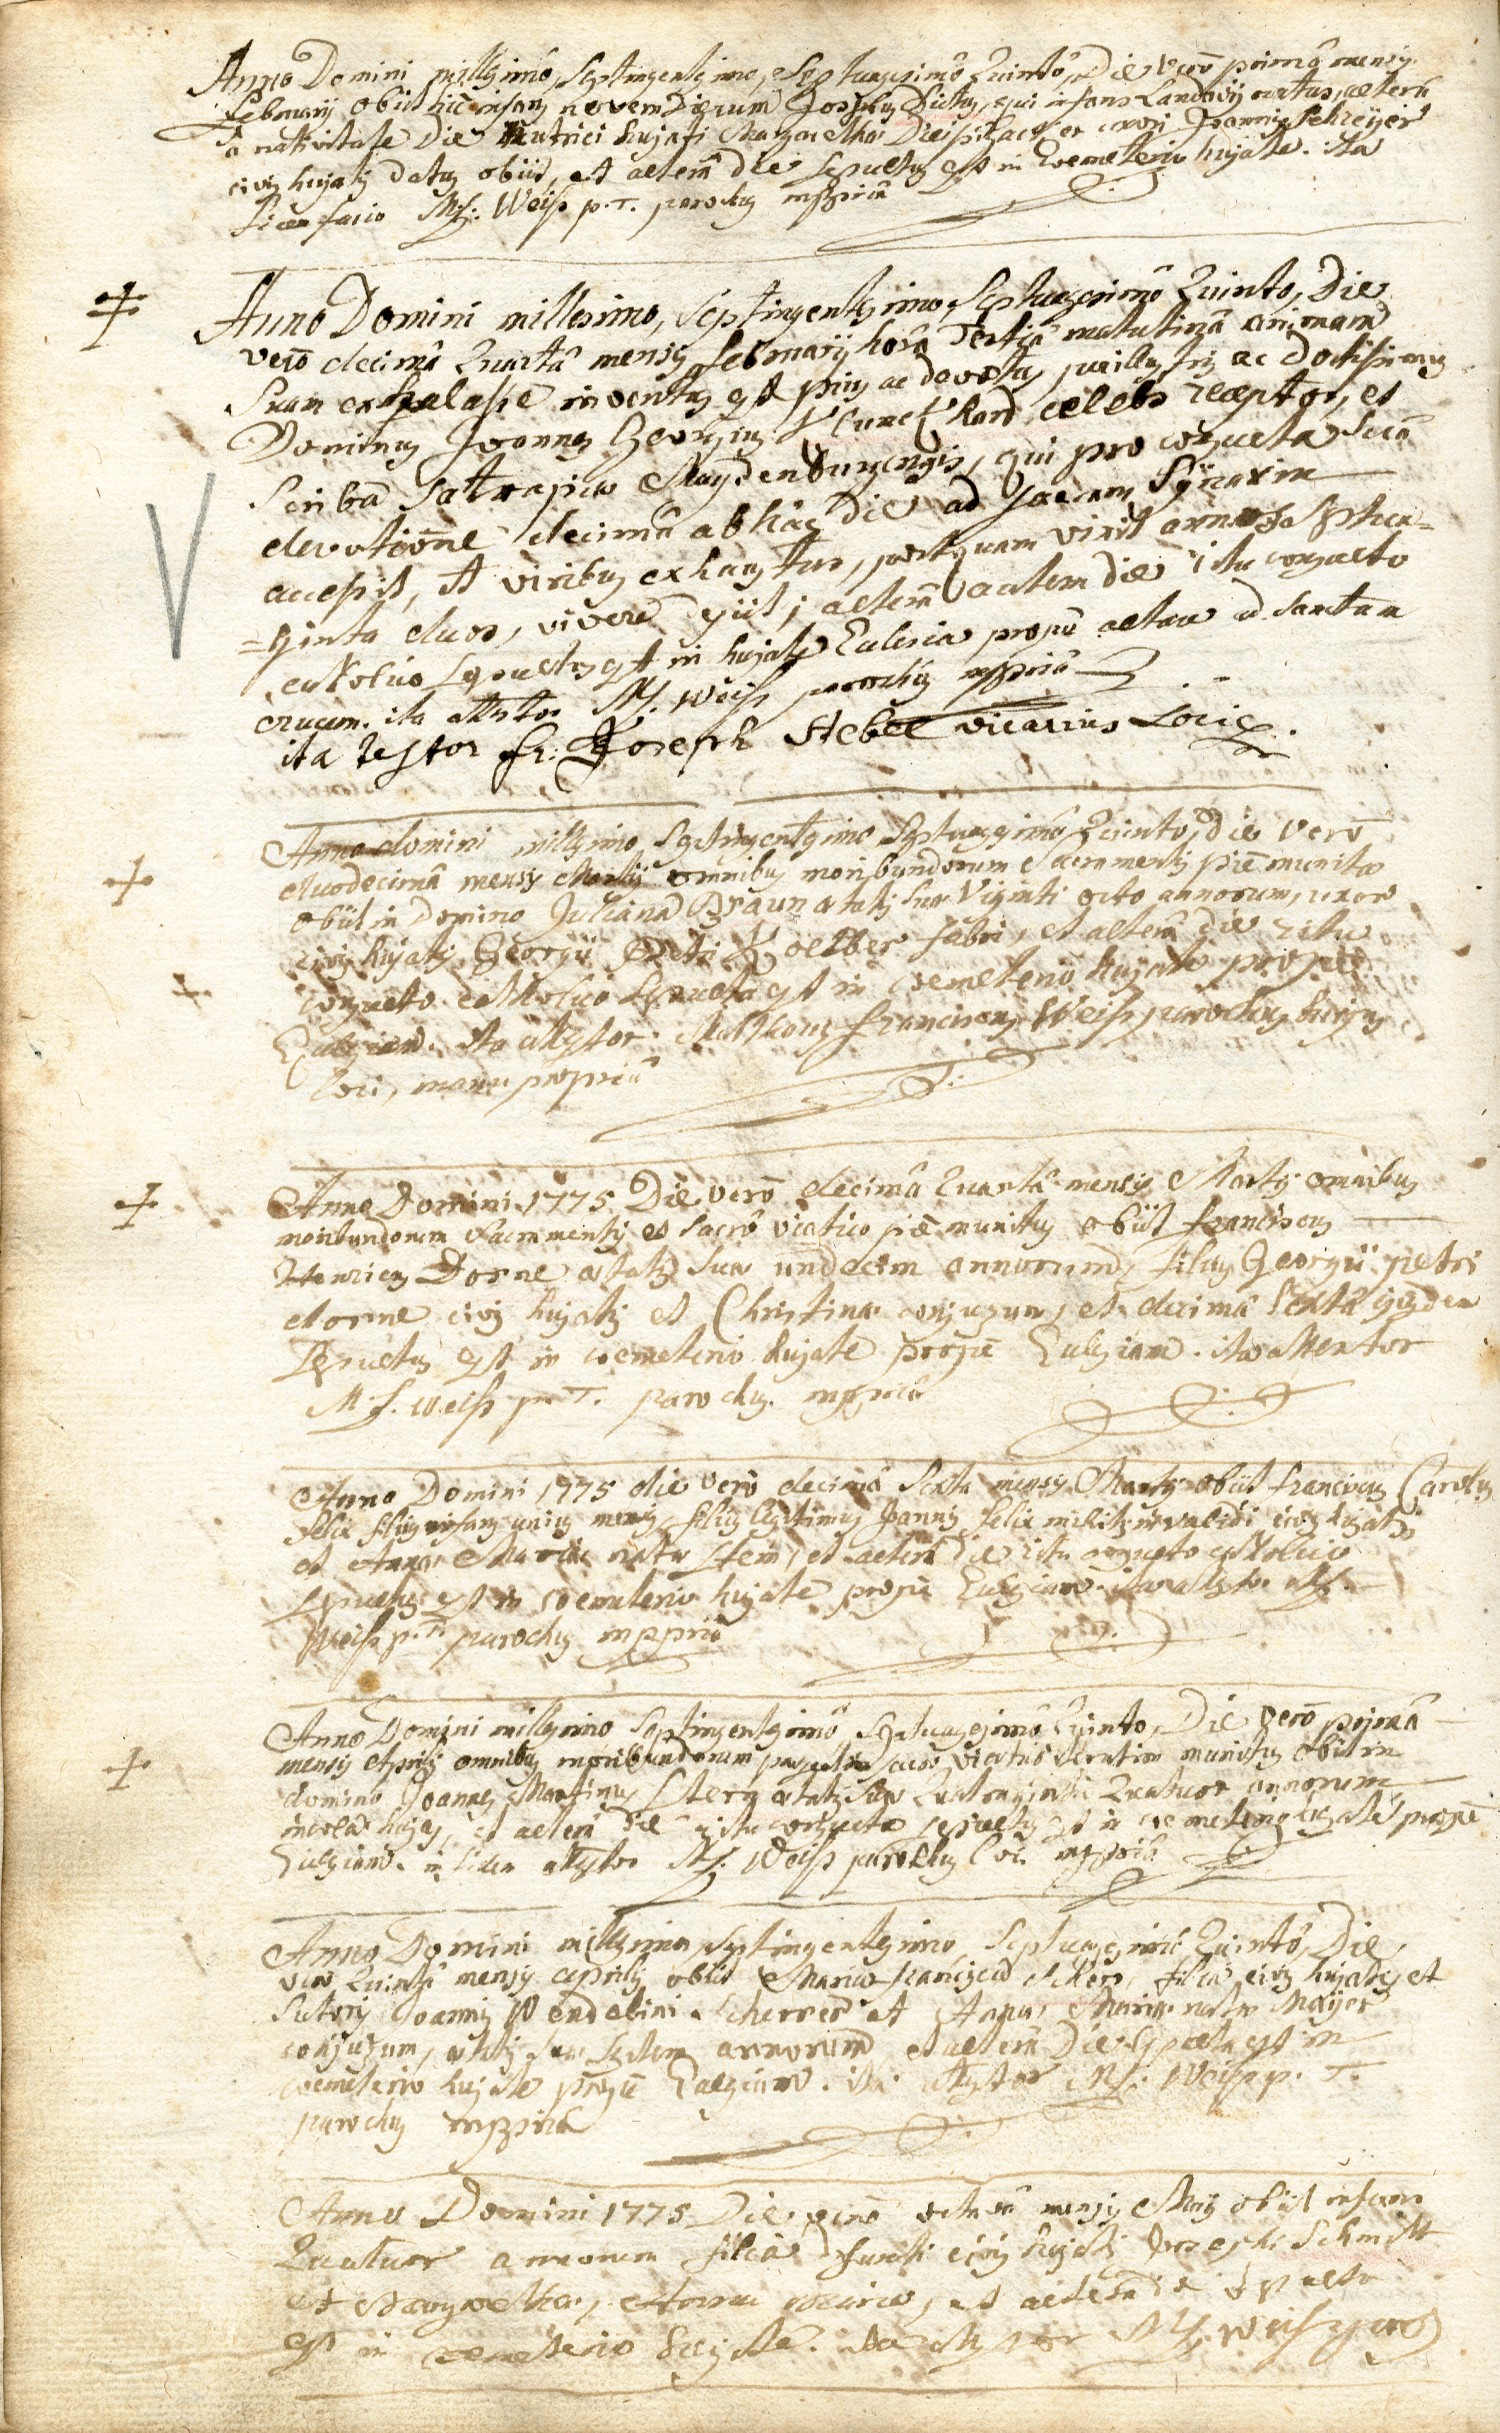 Anno Domini millesimô, septingentesimo, septuagesimô Quintô, Die verô primâ mensis
februarij obiit hic infans novem Dierum Josephus dictus, qui infans Landavij natus, alterâ
a nativitate die Nutrici hujati Margarethae uxori Joannis Schreijer
civis hujatis datus obiit, et alterâ die sepultus est in Coemeterio hujate. ita
fidem facio M: f: Weiss p. T. parochus mppriâ
Anno Domini millesimo, septingentesimo, septuagesimô Quinto, Die
verô decimâ Quartâ mensis februarij horâ Tertiâ matutinâ animam
suam exhalasse inventus est pius ac devotus, perillustris ac doctissimus
Dominus Joannes Georgius caelebs receptor, et
scriba satrapiae Magdenburgensis, qui pro consueta sua
devotione decimâ ab hac die ad sacram Synaxim
accepit, et viribus exhaustus, postquam vixit annos septua=
=ginta duos, vivere desiit; alterâ autem die ritu consueto
catholico sepultus est in hujate Ecclesia propè altare ad sanctam
crucem. ita attestor M f. Weiss parochus mppriâ
ita testor fr: Joseph Stebel vicarius Loci
Anno domini millesimo, septingentesimo septuagesimô Quinto, die verô
duodecimâ mensis Martij omnibus moribundorum sacramentis piè munita
obiit in Domino Juliana Braun aetatis suae Viginti octo annorum, uxor
civis hujatis Georgij Petri Koelber fabri, et alterâ die ritu
consueto catholico sepulta est in coemeterio hujate propè
Ecclesiam. ita attestor Matthaeus Franciscus Weiss parochus hujus
loci, manu propriâ
Anno Domini 1775 Die verô decimâ Quartâ mensis Martij omnibus
moribundorum sacramentis et sacro viatico piè munitus obiit franciscus
Henricus Dorne aetatis suae undecim annorum, filius Georgij petri
dorne civis hujatis et Christinae conjugum, et decimâ sextâ ejusdem
sepultus est in coemeterio hujate propè Ecclesiam. ita attestor
M. f. Weiss p. T. parochus mppriâ
Anno Domini 1775 die verò decimâ sextâ mensis Martij obiit franciscus Carolus
felix infans unius mensis, filius legitimus Joannis felix militis invalidi civis hujatis
et Annae Mariae natae Stein, et alterâ die ritu consueto catholico
sepultus est in coemeterio hujate propè Ecclesiam. ita attestor M f.
Weiss p. T. parochus mppriâ
Anno Domini millesimo septingentesimô septuagesimô Quinto, Die verô primâ
mensis Aprilis omnibus moribundorum sacro viatico munitus obiit in
domino Joannes Martinus Stern aetatis suae Quadraginta Quatuor annorum
incola hujas, et alterâ die ritu consueto sepultus est in coemeterio hujate propè
Ecclesiam. in fidem attestor M f. Weiss parochus loci mppriâ
Anno Domini millesimo septingentesimo septuagesimô Quintô, Die
vero Quintâ mensis aprilis obiit Maria francisca Scherer, filia civis hujatis et
sutoris Joannis Wendelini Scherrer et Annae Mariae natae Mayer
conjugum, aetatis suae septem annorum et alterâ Die sepulta est in
coemeterio hujate propè Ecclesiam. ita attestor M f: Weiss p. T.
parochus mppriâ
Anno Domini 1775 Die verô octavâ mensis Maij obiit infans
Quatuor annorum filia defuncti civis hujatis Josephi Schmitt
et Margarethae, Anna Maria, et alterâ die sepulta
est in coemeterio hujate. ita attestor M f. Weiss